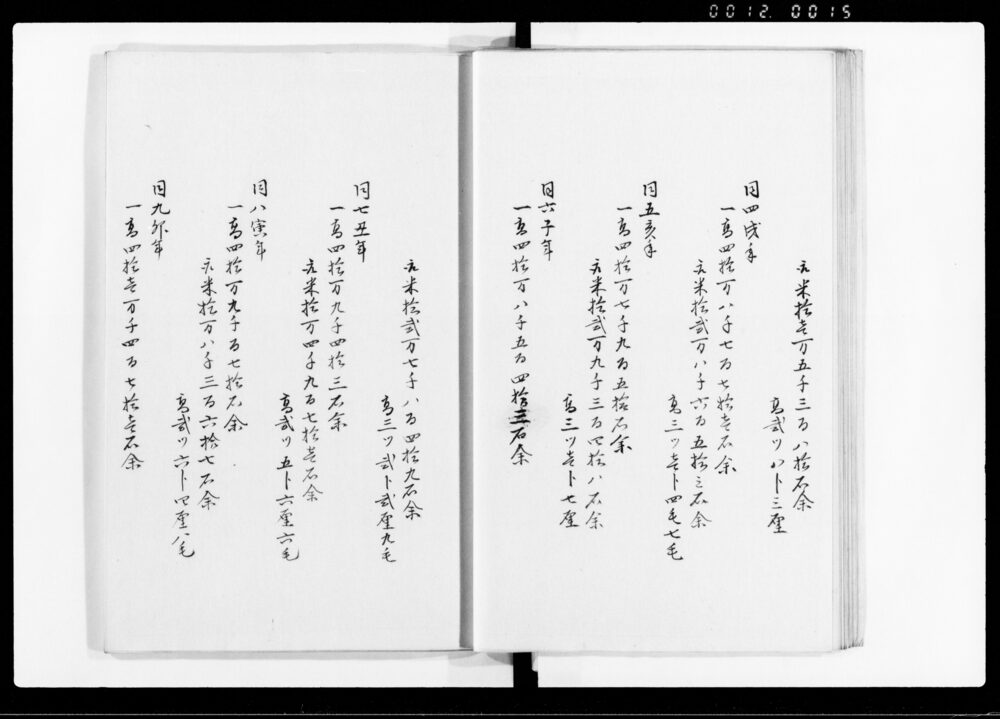 0012.0015
取米拾壱万五千三百八拾石余
高弐ツ八卜三厘
同四戌年
一高四拾万八千七百七拾壱石余
取米拾弐万八千六百五拾三石余
高三ツ壱卜四毛七毛
同五亥年
一高四拾万七千九百五拾石余
取米拾弐万九千三百四拾八石余
高三ツ壱卜七厘
同六子年
一高四拾万八千五百四拾三石余
取米拾弐万七千八百四拾九石余
高三ツ弐卜弐厘九毛
同七丑年
一高四拾万九千四拾三石余
取米拾万四千九百七拾壱石余
高弐ツ五卜六厘六毛
同八寅年
一高四拾万九千百七拾石余
取米拾万八千三百六拾七石余
高弐ツ六卜四厘八毛
同九卯年
一高四拾壱万千四百七拾壱石余